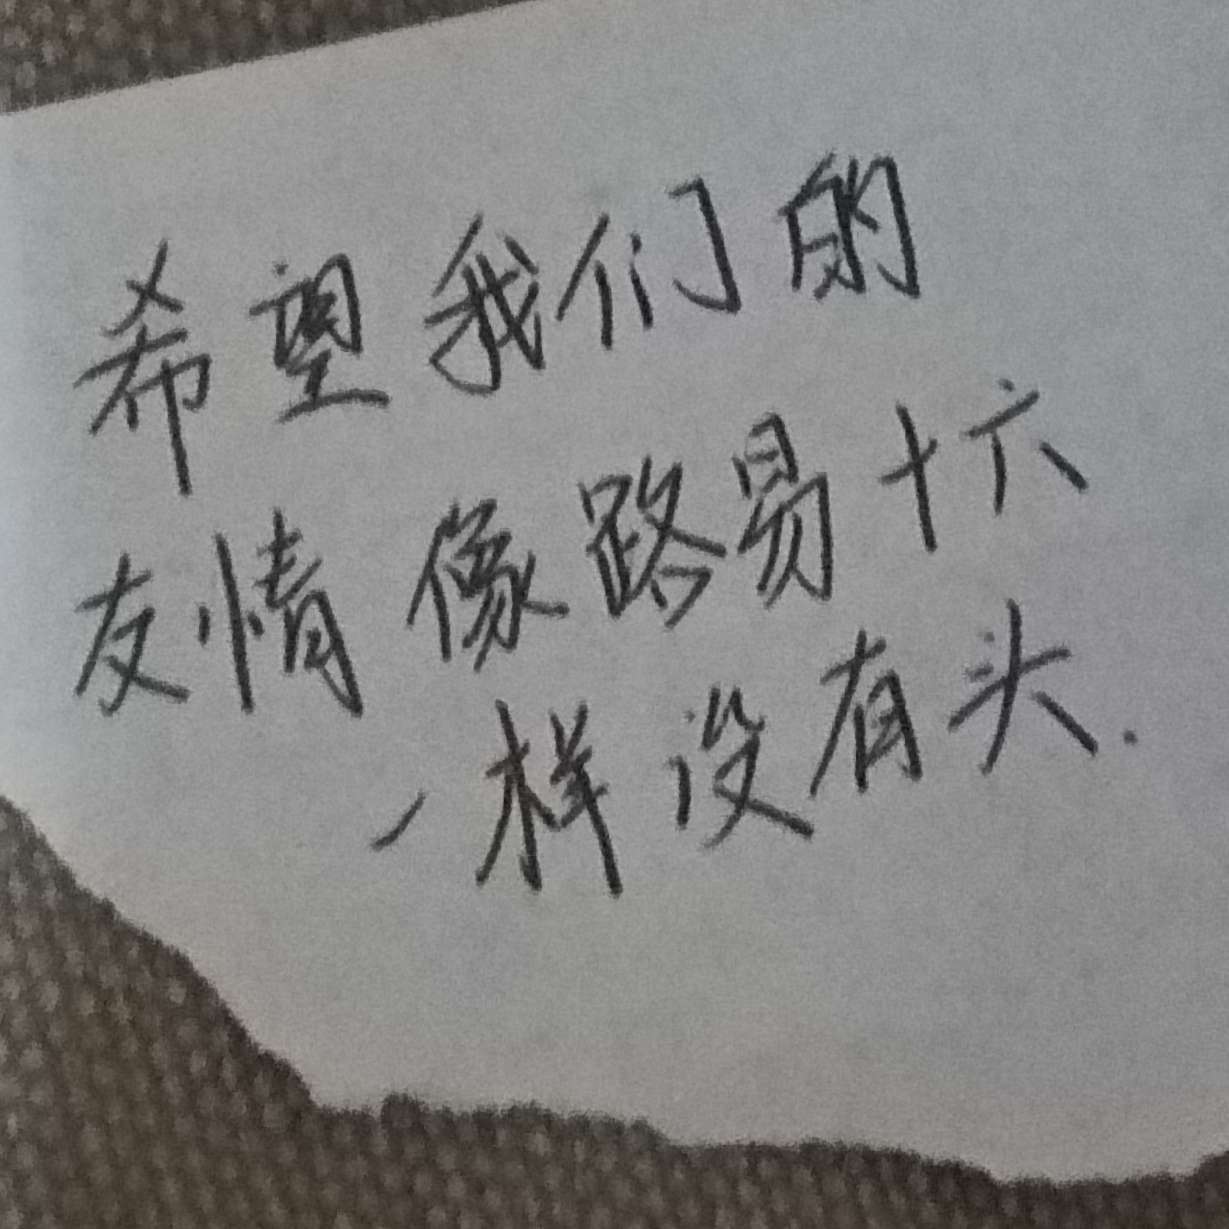 希望我们的
友情像路易十六
一样没有头.